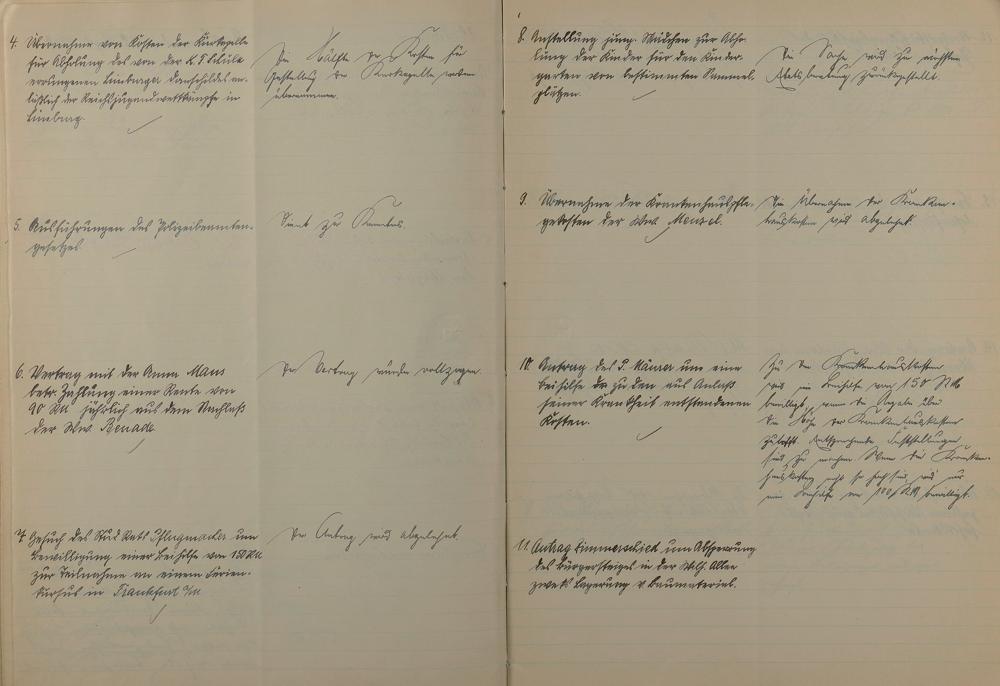 4. Übernahme von Kosten der Kurkapelle
für Abholung des von der K.T. Schule
errungenen Limburger Landschildes an-
läßlich der Reichsjugendwettkämpfe in
Limburg.
Die Hälfte der Kosten für
Gestellung der Kurkapelle werden
übernommen.
5. Ausführungen des Polizeibeamten-
gesetzes.
Dient zur Kenntnis.
6. Vertrag mit der Anna Maus
betr. Zahlung einer Rente von
90 RM jährlich aus dem Nachlaß
der Ww. Benade
Der Vertrag wurde vollzogen.
7. Gesuch des Stud. Rats Pflugmacher um
Bewilligung einer Beihilfe von 150 RM
zur Teilnahme an einem Ferien-
kursus in Frankfurt a/M
Der Antrag wird abgelehnt.
8. Anstellung jung. Mädchen zur Abho-
lung der Kinder für den Kinder-
garten von bestimmten Sammel-
plätzen.
Die Sache wird zur nächsten
Etatsberatung zurückgestellt.
9. Übernahme der Krankenhauspfle-
gekosten der Ww. Menzel.
Die Übernahme der Kranken-
hauskosten wird abgelehnt.
10. Antrag des J. um eine
Beihilfe zu den aus Anlaß
seiner Krankheit entstandenen
Kosten.
Zu den Krankenhauskosten
wird eine Beihilfe von 150 RM
bewilligt, wenn die Angabe über
die Höhe der Krankenhauskosten
zutrifft. Entsprechende Feststellungen
sind zu machen. Wenn die Kranken-
hauskosten nicht so hoch sind, wird nur
eine Beihilfe von 100 RM bewilligt.
11. Antrag Zimmerschied um Absperrung
des Bürgersteiges in der Wilh. Allee
zwecks Lagerung v. Baumaterial.